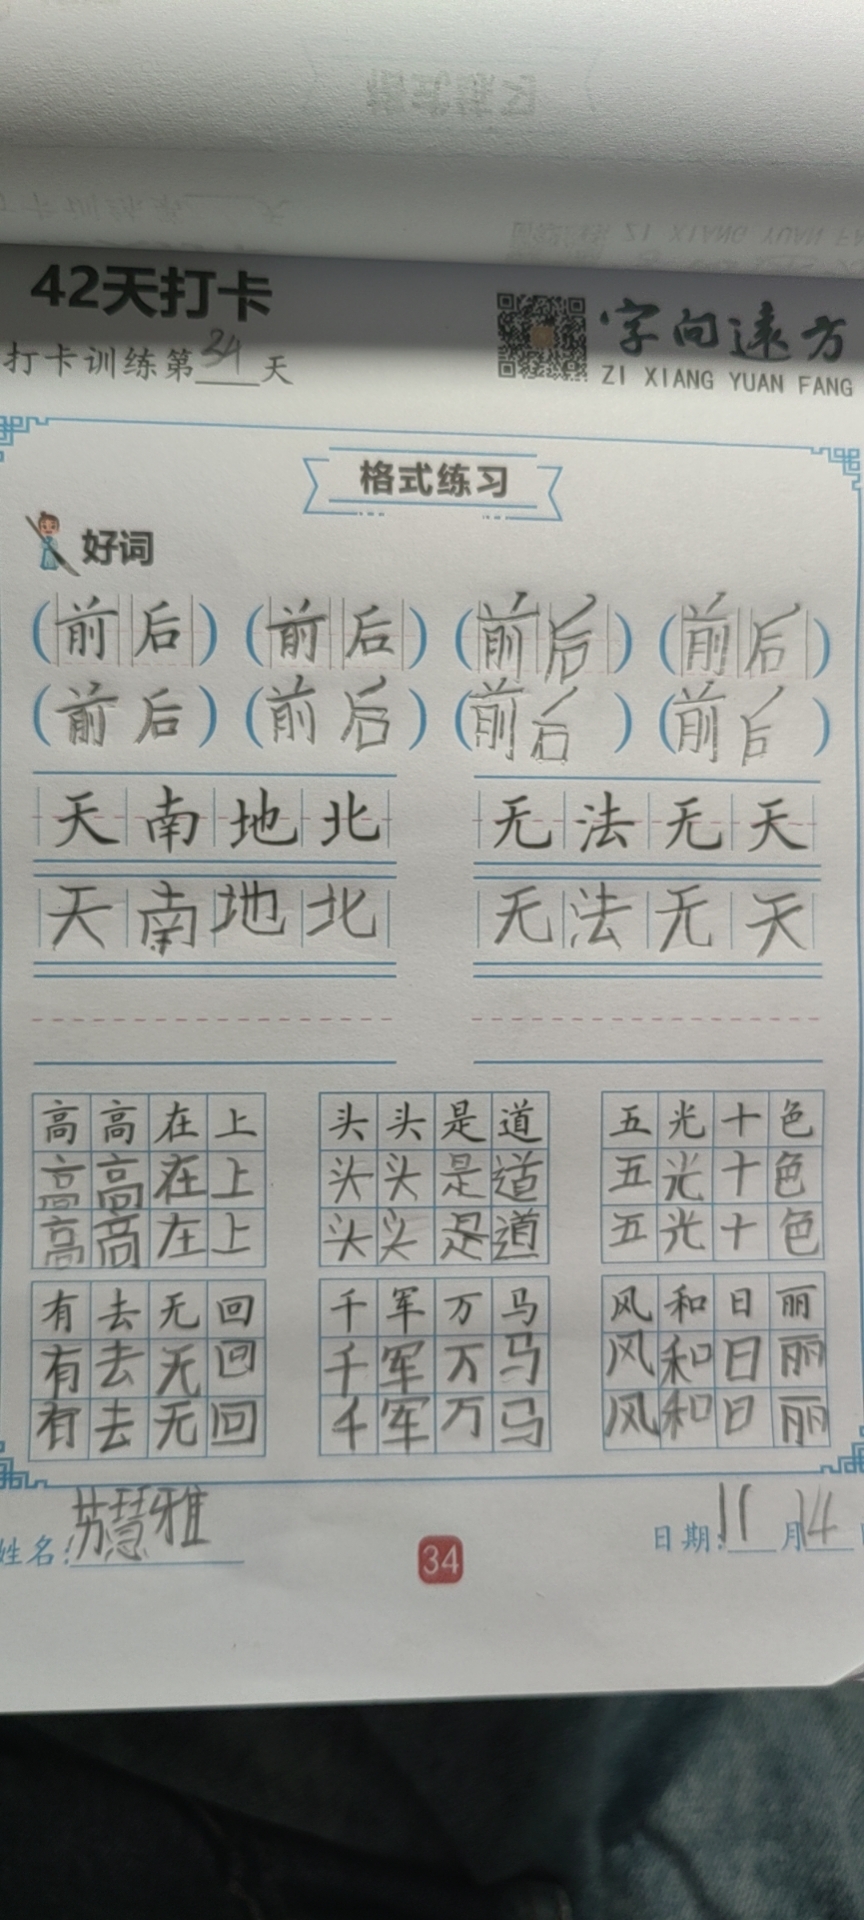 42天打卡
字向远方
打卡训练第34天
ZI XIANG YUAN FANG
格式练习
好词
(前后) (前后) (前后) (前后)
(前后) (前后) (前后) (前后)
天南地北 无法无天
天南地北 无法无天
高高在上 头头是道 五光十色
高高在上 头头是道 五光十色
高高在上 头头是道 五光十色
有去无回 千军万马 风和日丽
有去无回 千军万马 风和日丽
有去无回 千军万马 风和日丽
姓名:苏慧雅 34 日期:11月14